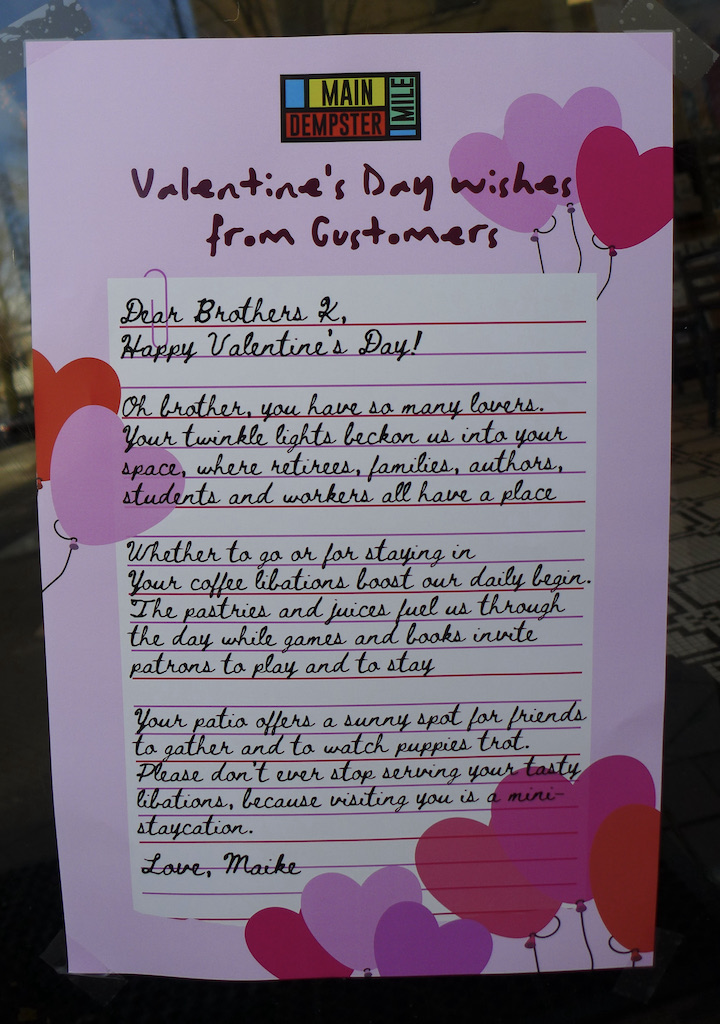 MAIN
DEMPSTER
MILE
Valentine's Day wishes
from Customers
Dear Brothers K,
Happy Valentine's Day!
Oh brother, you have so many lovers.
Your twinkle lights beckon us into your
space, where retirees, families, authors,
students and workers all have a place
Whether to go or for staying in
Your coffee libations boost our daily begin.
The pastries and juices fuel us through
the day while games and books invite
patrons to play and to stay
Your patio offers a sunny spot for friends
to gather and to watch puppies trot.
Please don't ever stop serving your tasty
libations, because visiting you is a mini-
staycation.
Love, Maike